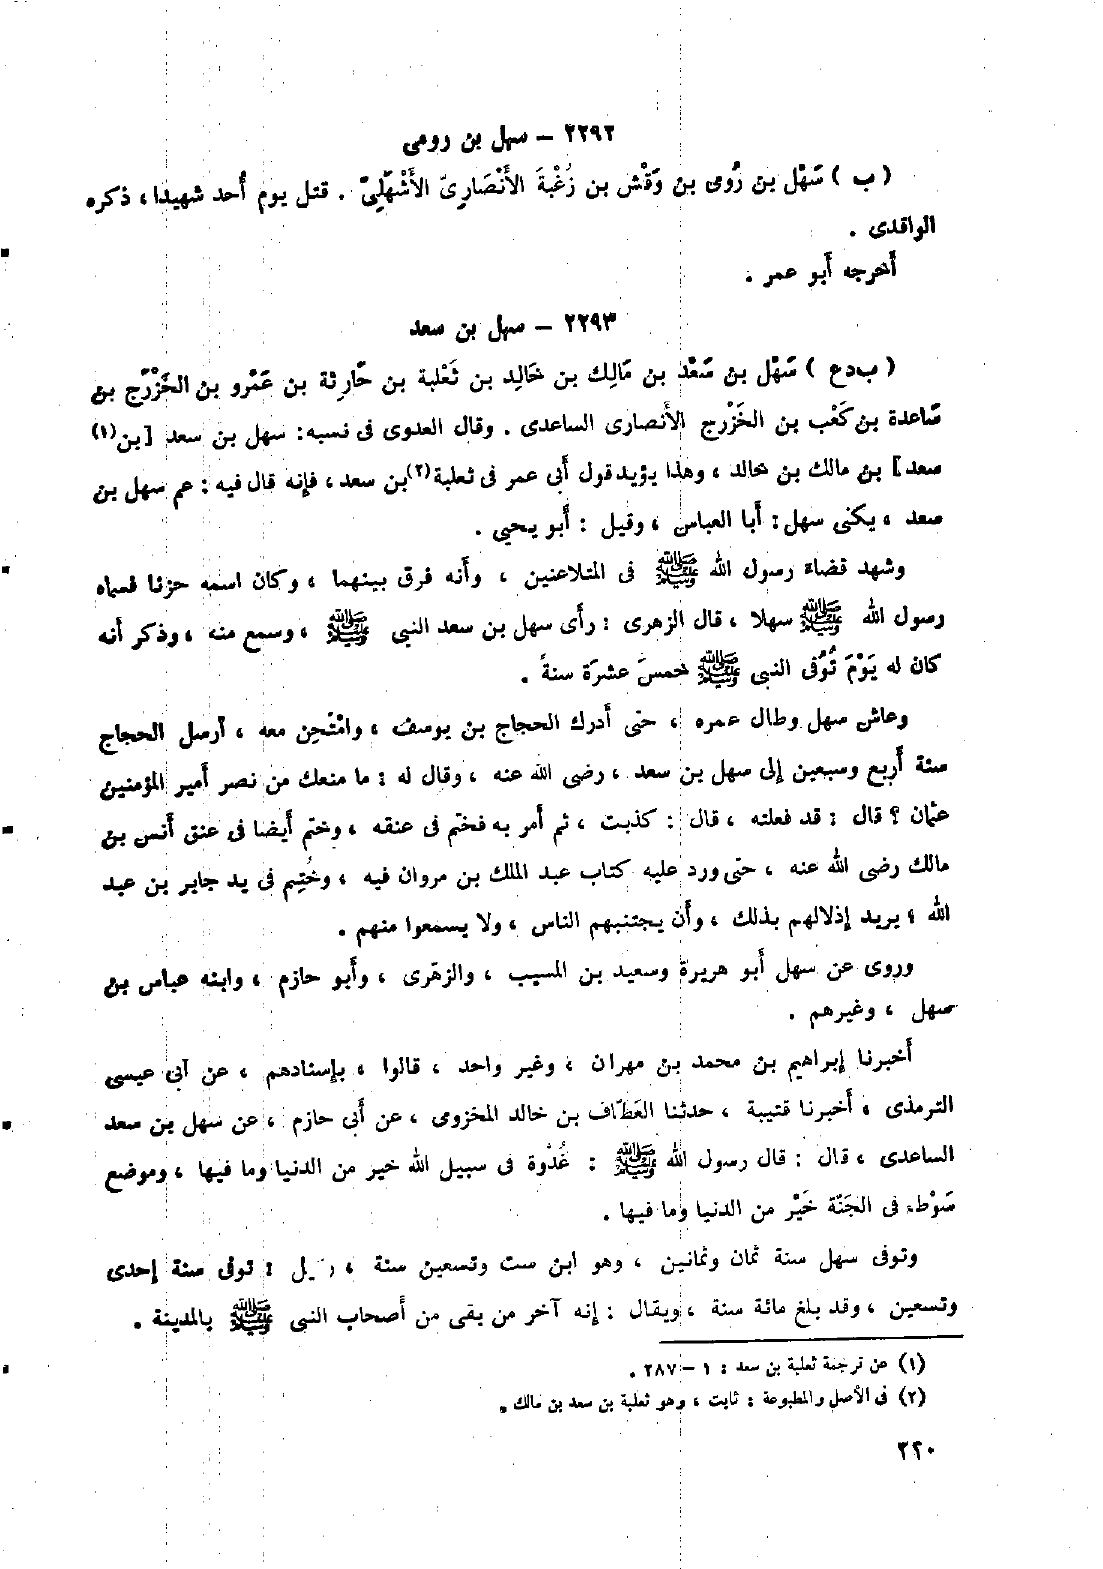 ٢٢٩٢ – سهل بن رومى
( ب ) سَهْل بن رُومى بن وَقْش بن زُغْبةَ الأَنْصَارِىّ الأَشْهَلِىّ . قتل يوم أُحد شهيدا ، ذكره
الواقدى .
أَخرجه أَبو عمر .
٢٢٩٣ – سهل بن سعد
( ب د ع ) سَهْل بن سَعْد بن مَالِك بن خَالِد بن ثَعْلبة بن حَارِثة بن عَمْرو بن الخَزْرَج بن
سَاعدة بن كَعْب بن الخَزْرج الأَنصارى الساعدى . وقال العدوى فى نسبه: سهل بن سعد [بن(١)
سعد] بن مالك بن خالد ، وهذا يؤيد قول أَبى عمر فى ثعلبة(٢)بن سعد ، فإنه قال فيه : عم سهل بن
سعد ، يكنى سهل : أَبا العباس ، وقيل : أَبو يحيى .
وشهد قضاء رسول الله ﷺ فى المتلاعنين ، وأَنه فرق بينهما ، وكان اسمه حزنا فسماه
رسول الله ﷺ سهلا ، قال الزهرى : رأَى سهل بن سعد النبى ﷺ ، وسمع منه ، وذكر أَنه
كان له يَوْمَ تُوُفى النبى ﷺ خمسَ عشرَة سنةً .
وعاش سهل وطال عمره ، حتى أَدرك الحجاج بن يوسف ، وامْتُحِن معه ، أَرسل الحجاج
سنة أَربع وسبعين إلى سهل بن سعد ، رضى الله عنه ، وقال له : ما منعك من نصر أَمير المؤمنين
عثمان ؟ قال : قد فعلته ، قال : كذبت ، ثم أَمر به فختم فى عنقه ، وختم أَيضا فى عنق أَنس بن
مالك رضى الله عنه ، حتى ورد عليه كتاب عبد الملك بن مروان فيه ، وخُتِم فى يد جابر بن عبد
الله ؛ يريد إذلالهم بذلك ، وأَن يجتنبهم الناس ، ولا يسمعوا منهم .
وروى عن سهل أَبو هريرة وسعيد بن المسيب ، والزهرى ، وأَبو حازم ، وابنه عباس بن
سهل ، وغيرهم .
أَخبرنا إبراهيم بن محمد بن مهران ، وغير واحد ، قالوا ، بإسنادهم ، عن أَبى عيسى
الترمذى ، أَخبرنا قتيبة ، حدثنا العَطَّاف بن خالد المخزومى ، عن أَبى حازم ، عن سهل بن سعد
الساعدى ، قال : قال رسول الله ﷺ : غُدْوة فى سبيل الله خير من الدنيا وما فيها ، وموضع
سَوْط فى الجَنَّة خَيْر من الدنيا وما فيها .
وتوفى سهل سنة ثمان وثمانين ، وهو ابن ست وتسعين سنة ، : توفى سنة إحدى
وتسعين ، وقد بلغ مائة سنة ، ويقال : إنه آخر من بقى من أَصحاب النبى ﷺ بالمدينة .
(١) عن ترجمة ثعلبة بن سعد : ١ – ٢٨٧ .
(٢) فى الأصل والمطبوعة : ثابت ، وهو ثعلبة بن سعد بن مالك .
٣٢٠